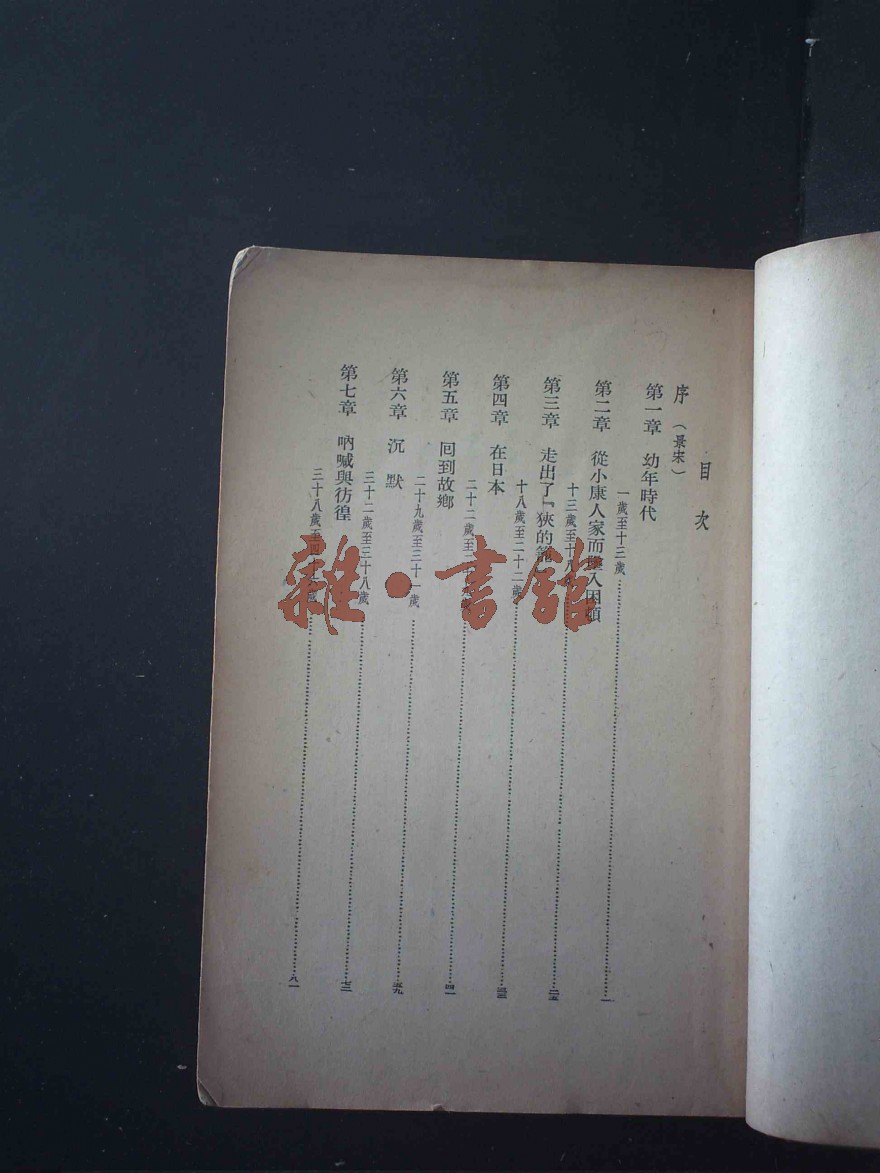 目次
序（景宋）
第一章　幼年時代
一歲至十三歲……一
第二章　從小康人家而墜入困頓
十三歲至十八……二五
第三章　走出了『狹的籠
十八歲至二十二歲……三三
第四章　在日本
二十二歲至……四一
第五章　回到故鄉
二十九歲至三十一歲……五九
第六章　沉默
三十二歲至三十八歲……七三
第七章　吶喊與彷徨
三十八歲至四十……八一
雜·書館